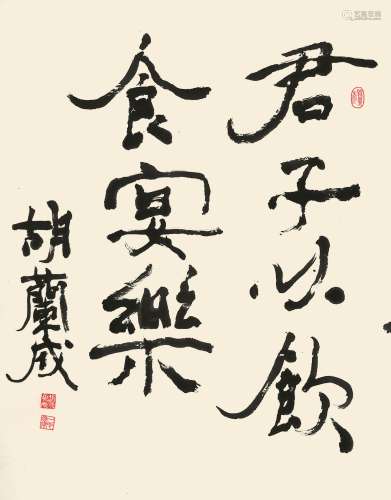 君子以飲
食宴樂
胡蘭成